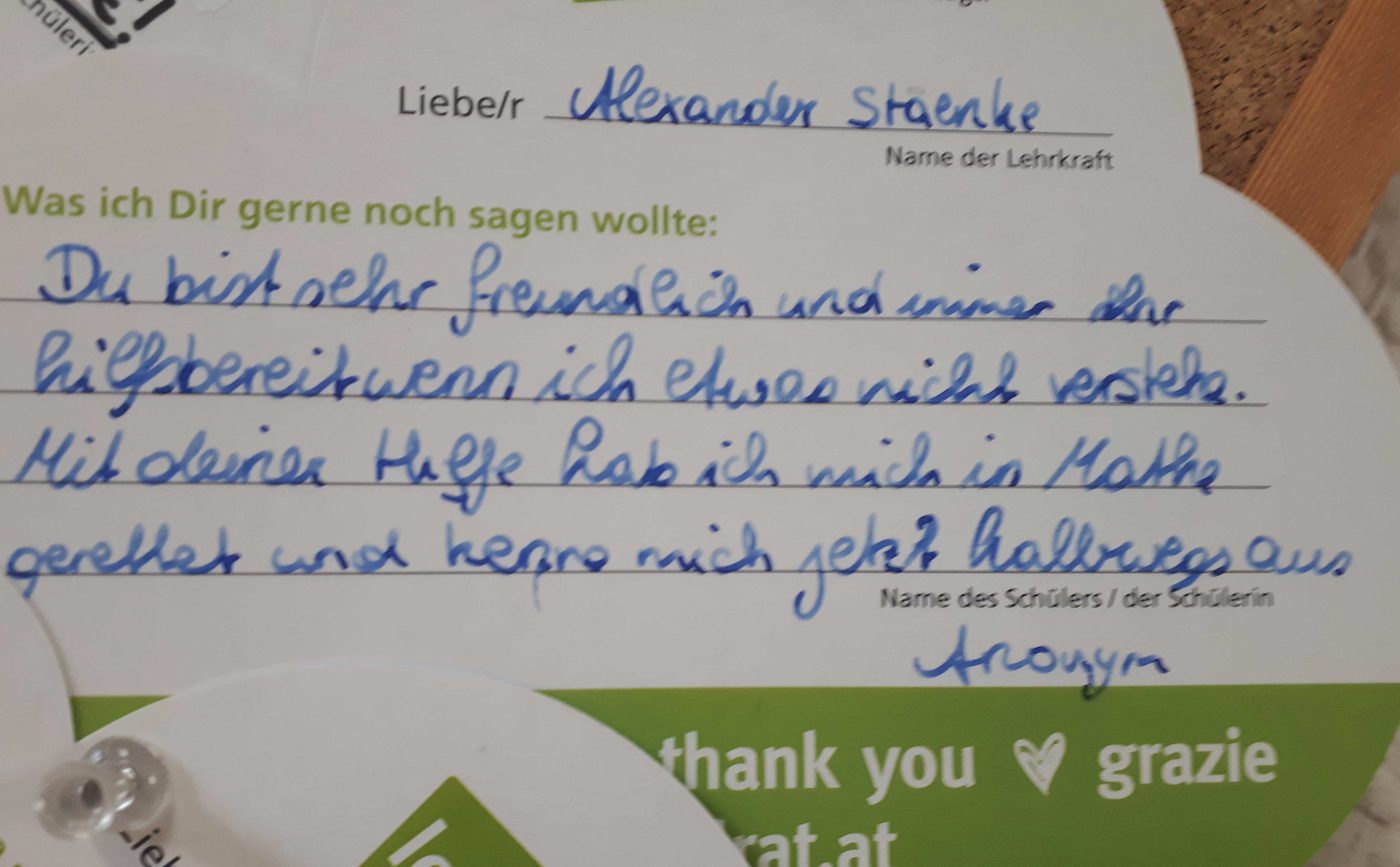 Liebe/r Alexander Staenke
Name der Lehrkraft
Was ich Dir gerne noch sagen wollte:
Du bist sehr freundlich und immer
hilfsbereit wenn ich etwas nicht verstehe.
Mit deiner Hilfe hab ich mich in Mathe
gerettet und kenne mich jetzt halbwegs aus
Name des Schülers / der Schülerin
Anonym
thank you grazie
rat.at